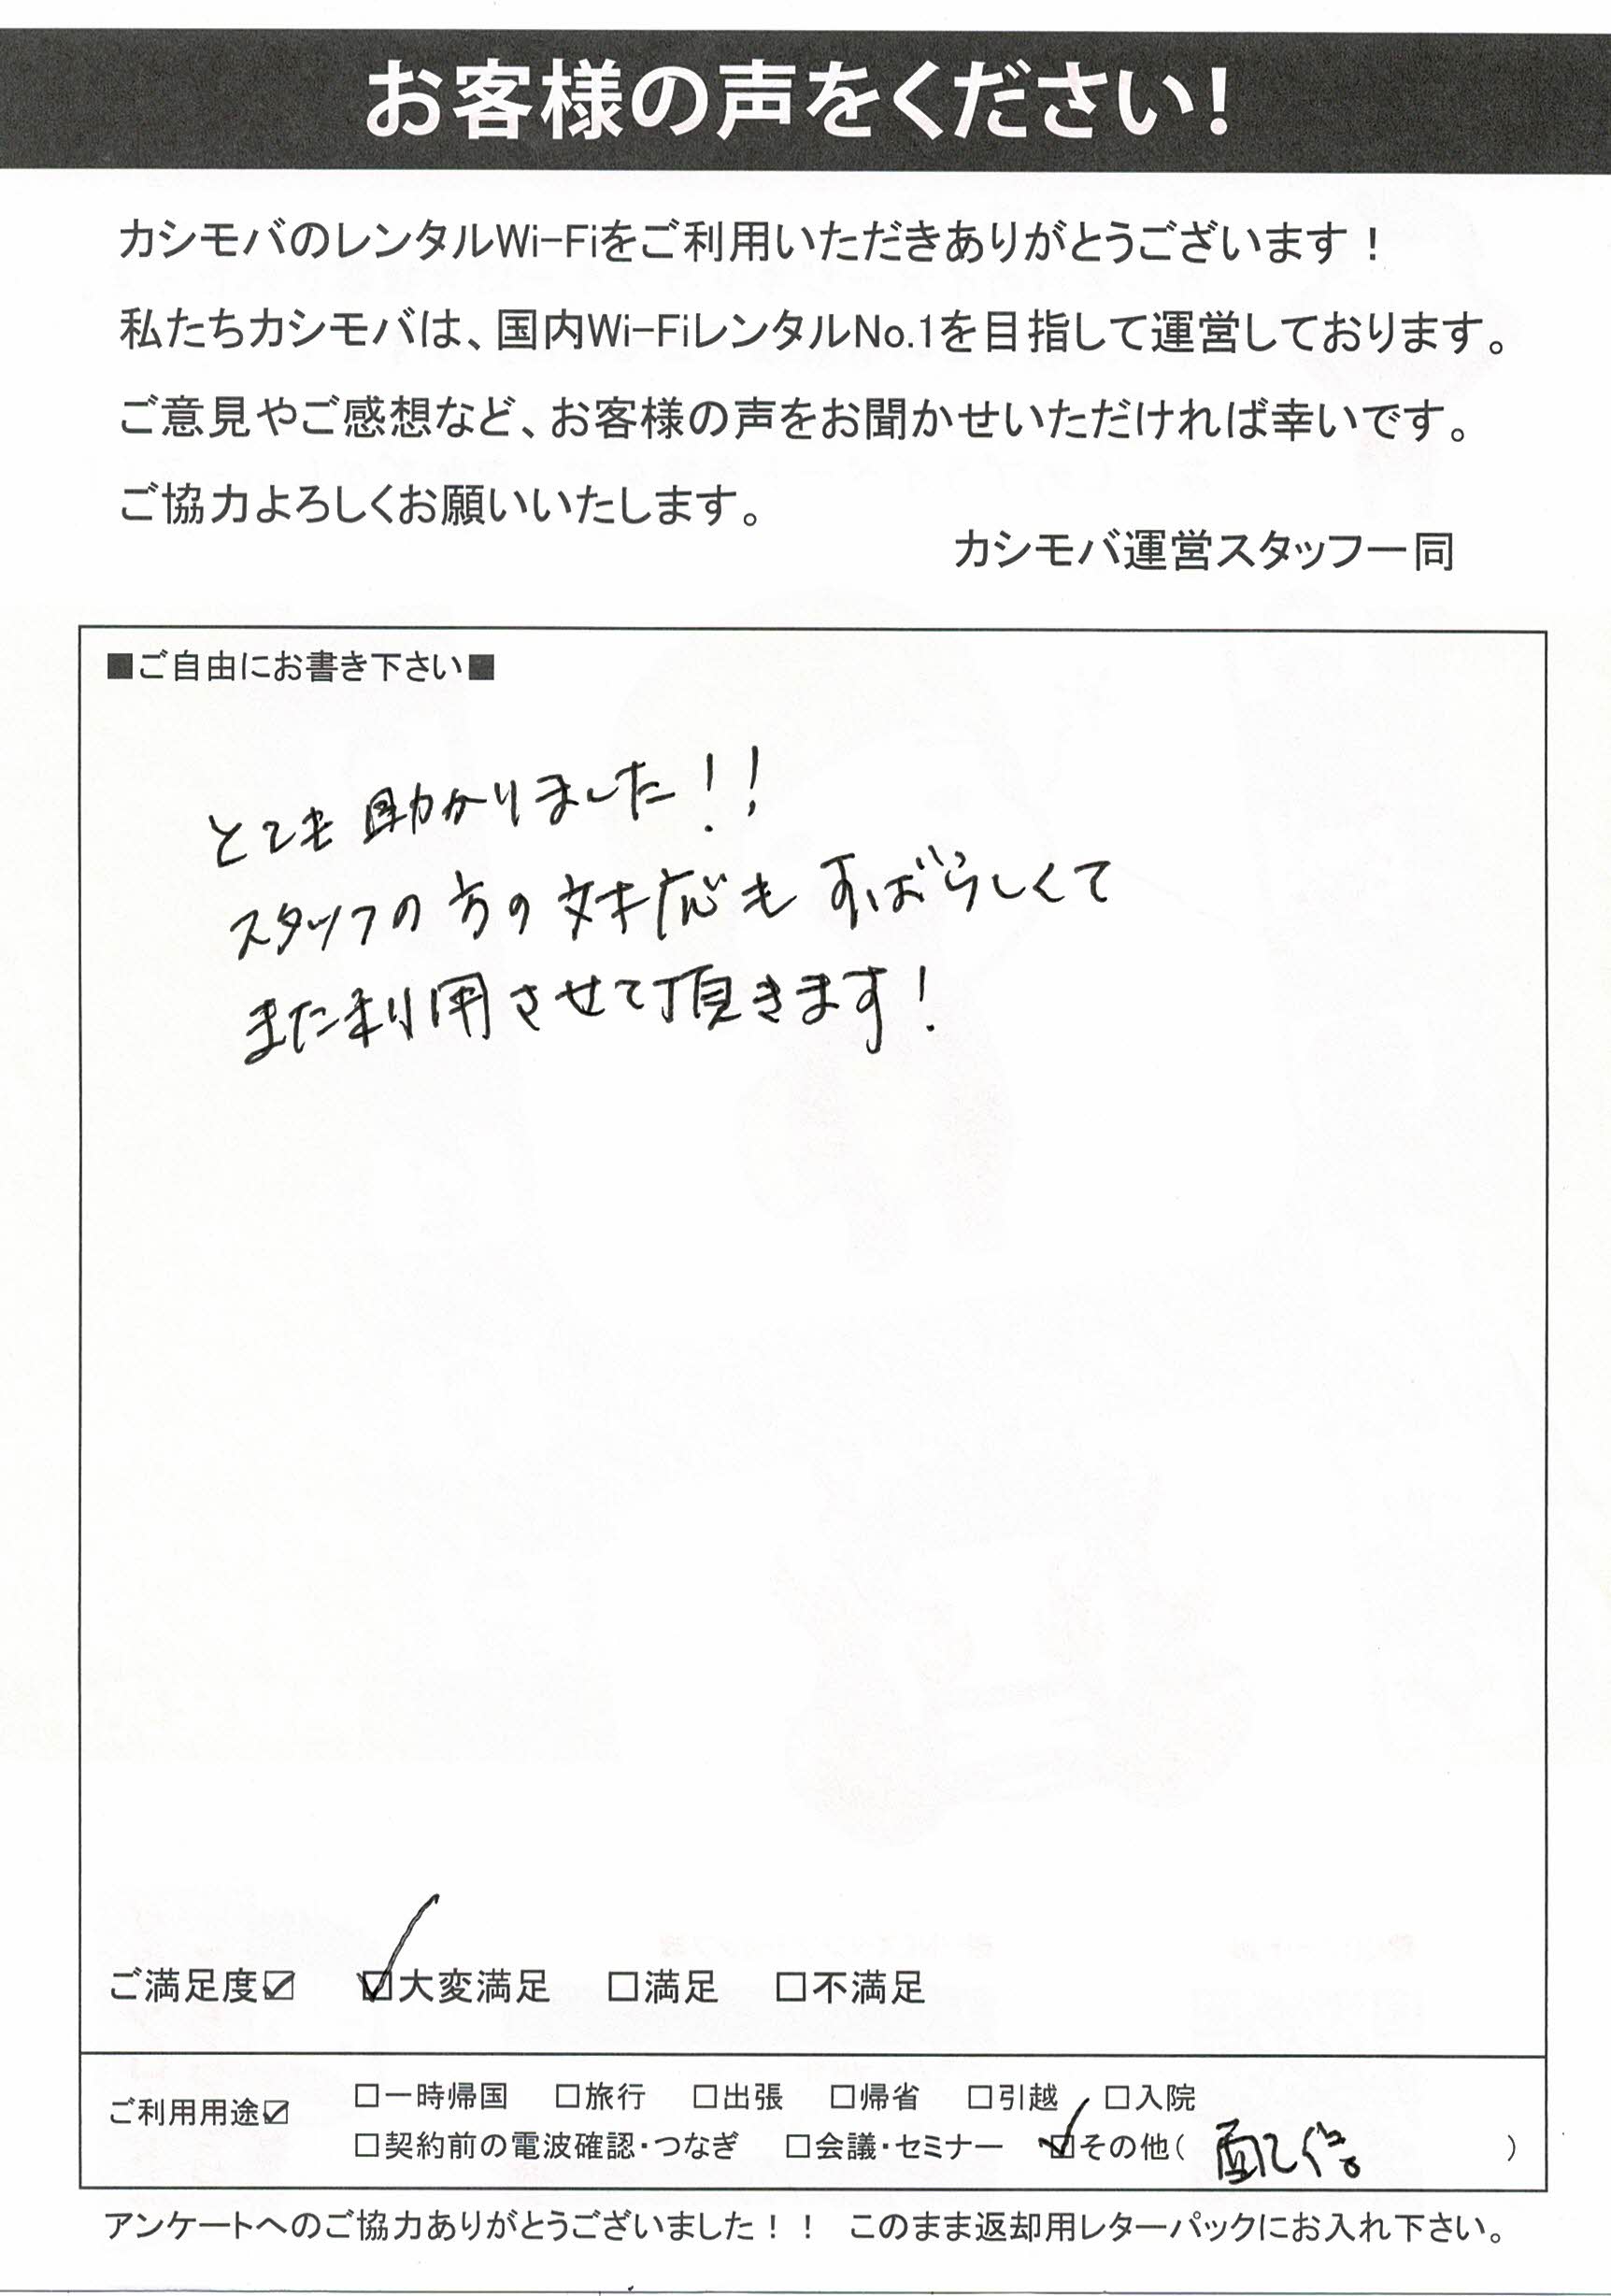 お客様の声をください!
カシモバのレンタルWi-Fiをご利用いただきありがとうございます！
私たちカシモバは、国内Wi-FiレンタルNo.1を目指して運営しております。
ご意見やご感想など、お客様の声をお聞かせいただければ幸いです。
ご協力よろしくお願いいたします。
カシモバ運営スタッフ一同
■ご自由にお書き下さい■
とても助かりました！！
スタッフの方の対応もすばらしくて
また利用させて頂きます！
ご満足度☑ ☑大変満足 □満足 □不満足
ご利用用途☑ □一時帰国 □旅行 □出張 □帰省 □引越 □入院
□契約前の電波確認・つなぎ □会議・セミナー ☑その他( 配信 )
アンケートへのご協力ありがとうございました！！ このまま返却用レターパックにお入れ下さい。